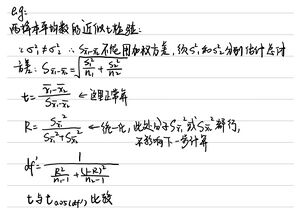 eg:
两样本平均数的近似t检验:
∵σ₁²≠σ₂² ∴S_{x̄₁-x̄₂}不能用加权方差,须S₁²和S₂²分别估计总体
方差: S_{x̄₁-x̄₂}=√(S₁²/n₁ + S₂²/n₂)
t=(x̄₁-x̄₂)/S_{x̄₁-x̄₂} ←这里正常算
R=S_{x̄₁}²/(S_{x̄₁}²+S_{x̄₂}²) ←统一化,此处分子S_{x̄₁}²或S_{x̄₂}²都行,
不影响下一步计算
df'=1/(R²/(n₁-1) + (1-R)²/(n₂-1))
t与t₀.₀₅(df')比较